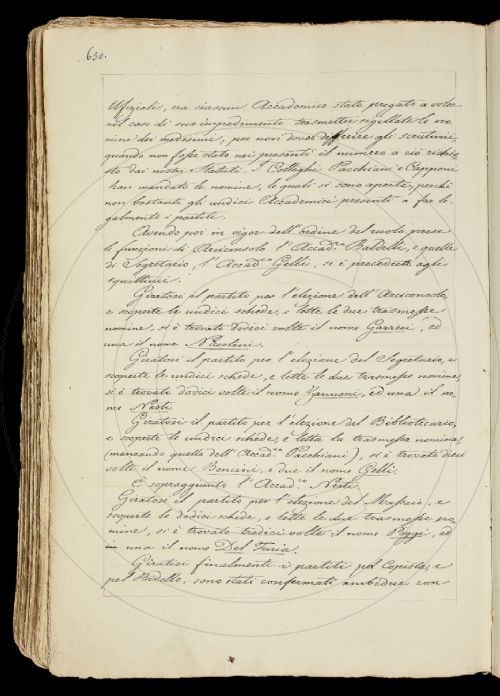 630.
Uffiziali, era ciascun Accademico stato pregato a voler
nel caso di suo impedimento trasmetter sigillate le no-
mine dei medesimi, per non dover differire gli scrutinii,
quando non fosse stato nei presenti il numero a ciò richie-
sto dai nostri Statuti. I Colleghi Pacchiani e Capponi
han mandate le nomine, le quali si sono aperte, perchè
non bastanti gli undici Accademici presenti a far le-
galmente i partiti.
Avendo poi in vigor dell'ordine del ruolo prese
le funzioni di Arciconsolo l'Accad.co Baldelli, e quelle
di Segretario, l'Accad.co Gelli, si è proceduto agli
squittinii.
Giratosi il partito per l'elezione dell'Arciconsolo,
e scoperte le undici schede, e lette le due trasmesse
nomine, si è trovato dodici volte il nome Gazzeri, ed
una il nome Niccolini.
Giratosi il partito per l'elezione del Segretario, e
scoperte le undici schede, e lette le due trasmesse nomine,
si è trovato dodici volte il nome Zannoni, ed una il no-
me Nesti.
Giratosi il partito per l'elezione del Bibliotecario,
e scoperte le undici schede, e letta la trasmessa nomina,
(mancando quella dell'Accad.co Pacchiani), si è trovato dieci
volte il nome Bencini, e due il nome Gelli.
È sopraggiunto l'Accad.co Nesti.
Giratosi il partito per l'elezione del Massaio, e
scoperte le dodici schede, e lette le due trasmesse no-
mine, si è trovato tredici volte il nome Poggi, ed
una il nome Del Furia.
Giratisi finalmente i partiti pel Copista, e
pel Bidello, sono stati confermati ambedue con